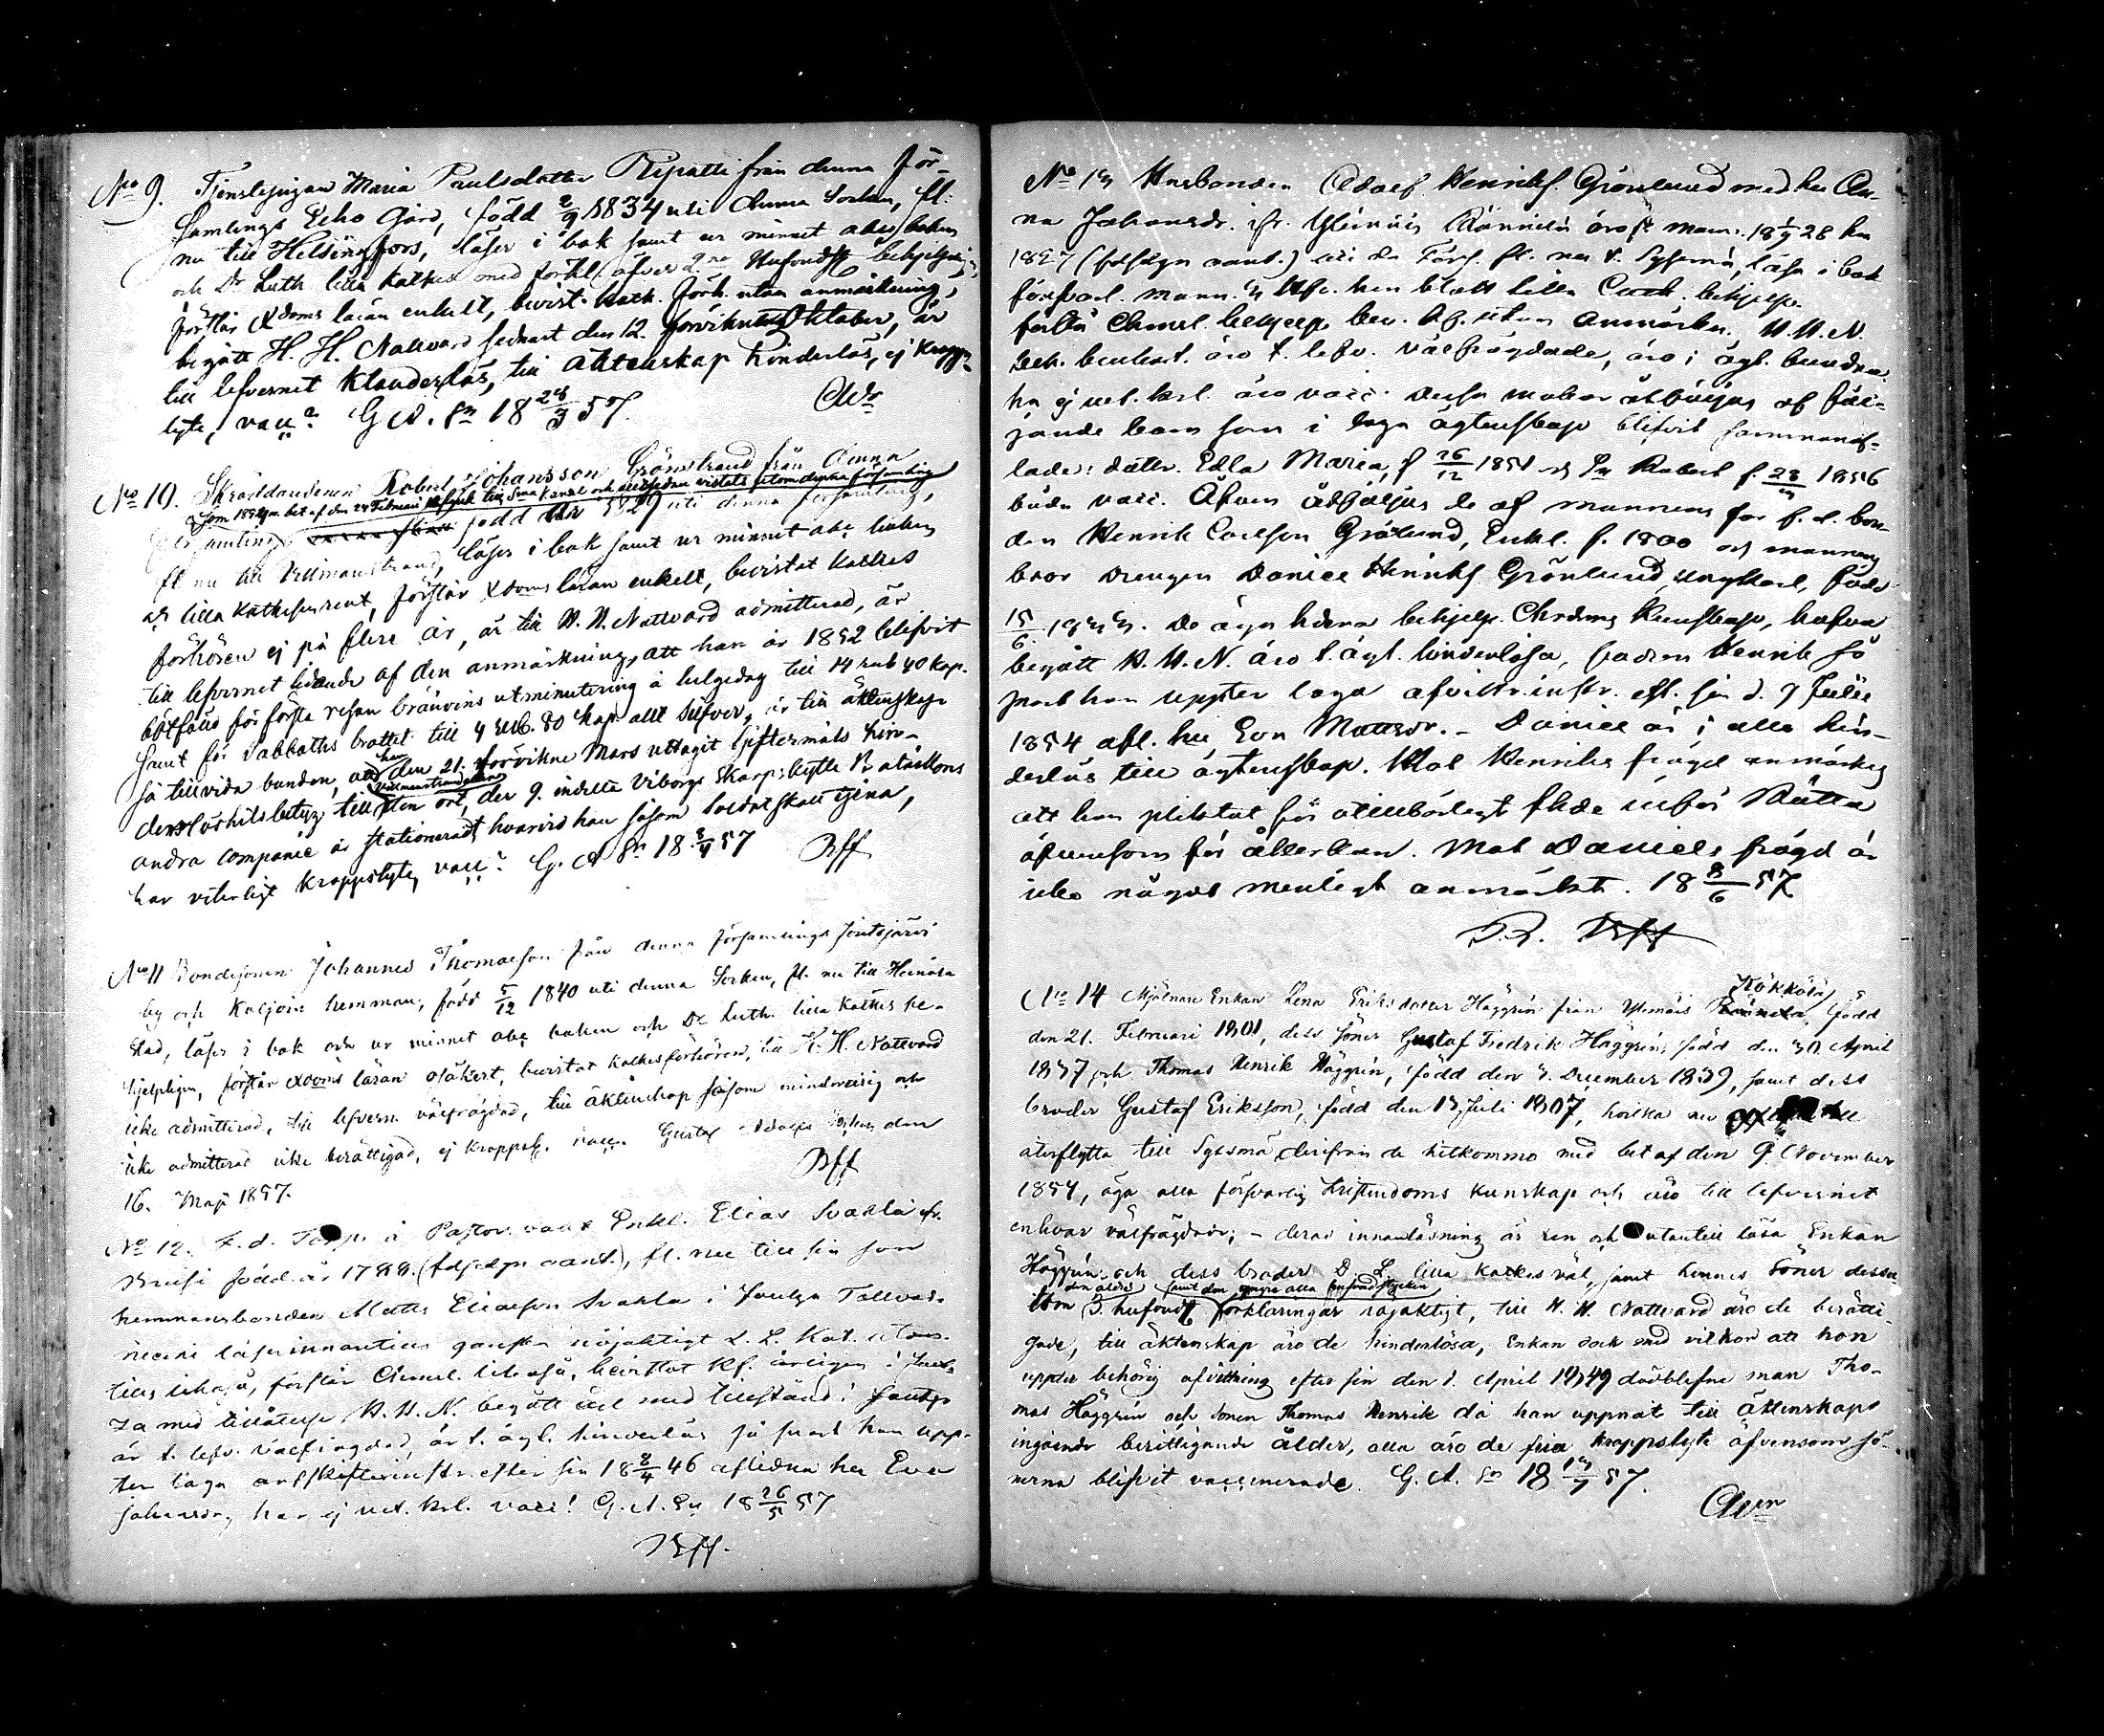 No 9. Tjenstepigan Maria Paulsdotter Ripatti från denna För-
samlings Echo Gård, född 2/9 1834 uti denna Socken, fl.
nu till Helsingfors, läser i bok samt ur minnet abc boken
och Dr Luth. lilla katkes med förkl. öfver Hufvudst behjelpligt,
förstår Xdoms läran enkelt, bevist. katk. förh. utan anmärkning,
begått H. H. Nattvard sednast den 12. förvikne Oktober, är
till lefvernet klanderlös, till äktenskap hinderlös, ej kropps-
lyte, vacc? G A. Sn 18 28/3 57.
No 10. Skräddaredrengen Robert Johansson Grönstrand från denna
som 1854 m. bet af den 24 Februari till Sma Kanal och sedan vistats utom denna församling
församling född År 1829 uti denna församling,
fl nu till Villmanstrand, läser i bok samt ur minnet abc boken
och lilla kathesen rent, förstår Xdoms läran enkelt, bevistat katkes
förhören ej på flere år, är till H. H. Nattvard admitterad, är
till lefvernet lidande af den anmärkning, att han år 1852 blifvit
bötfäld för första resan bränvins utminutering å helgedag till 14 rub 40 kop.
samt för sabbaths brottet till 4 rub. 80 kop. allt silfver, är till äktenskap
så tillvida bunden, att han den 21. förvikne Mars uttagit Giftermåls hin-
derslöshets betyg till den ort, der 9. indelta Viborgs Skarpskytte Bataillons
andra compani är stationeradt, hvarvid han såsom soldat skall tjena,
har veterligt kroppslyte, vacc? G. A Sn 18 3/4 57
No 11 Bondesonen Johannes Thomasson från denna församlings Joutsjärvi
by och Kaljoin hemman, född 5/12 1840 uti denna Socken, fl. nu till Heinola
Stad, läser i bok och ur minnet abc boken och Dr Luth. lilla katkes be-
hjelpligen, förstår Xdoms läran osäkert, bevistat katkesförhören, till H. H. Nattvard
icke admitterad, till lefvern. välfrägdad, till äktenskap såsom minderårig och
icke admitterad icke berättigad, ej kroppsl. vacc. Gustaf Adolfs Socken den
16. Maji 1857.
No 12. F. d. å Pastor. vaux Enkl. Elias Svahla fr.
född år 1788. (fdsdgn oant.), fl. nu till sin son
hemmansbonden Matts Eliasson Svahla i Joutza Tollvad-
niemi läser innantill ganska nöjaktigt L. L. Kat. utan-
till likaså, förstår Chnml. likaså, bevistat Kf. årligen i Jout-
za med tillåtelse, H. H. N. begått äfv. med tillstånd i Joutza
är t. lefv. välfrägdad, är t. ägt. hinderlös så snart han upp-
ter laga arfskifteinstr. efter sin 18 8/4 46 aflidna hu Eva
Johansdr, har ej vet. krl. vacc! G. A. Sn 18 26/5 57
No 13 Husbonden Adolf Henrikss. Grönlund med hu An-
na Johansdr. ifr. Ylimäis Rönnilä äro f. mann. 18 1/9 28 hu
1827 (fdsdgn oant.) uti da Förs. fl. nu t. Sysmä, läsa i bok
försvarl. mann. 3 Hfs. hun blott lilla Cat. behjelp.
förstå Chnml. behjelp. bev. Kf. utan anmärkn. H. H. N.
beh. beviset. äro t. lefv. välfrägdade, äro i ägt. bundna.
ha ej vet. krl. äro vacc. Dessa makar åtföljas af föl-
jande barn som i laga ägtenskap blifvit sammanaf-
lade: dottr. Edla Maria, f 26/12 1851 och Sn Robert f. 28/3 1856
båda vacc. Äfven åtföljas de af mannens far f. d. bon-
den Henrik Carlson Grölund, Enkl. f. 1800 och mannens
bror Drengen Daniel Henrikss Grönlund, ungkarl, född
15/6 1833. De äga hdera behjelp. Chrdms kunskap, hafva
begått H. H. N. äro t. ägt. hinderlösa, fadren Henrik så
snart han uppter laga afvittr. instr. eft. sin d. 9 Julii
1854 afl. hu Eva Mattsdr. – Daniel är i alla hin-
derlös till ägtenskap. Mot Henriks frägd anmärkes
att han pliktat för otillbörligt skde inför Rätta
äfvensom för åkerkan. Mot Daniels frägd är
icke något menligt anmärkt. 18 8/6 57
No 14 Mjölnare Enkan Lena Eriksdotter Häggrén från Ylimäis Kökkölä, född
den 21. Februari 1801, dess söner Gustaf Fredrik Häggrén, född den 30 April
1837 och Thomas Henrik Häggrén, född den 3. December 1839, samt dess
broder Gustaf Eriksson, född den 13 Juli 1807, hvilka nu
återflytta till Sysmä, derifrån de hitkommo med bet af den 9 November
1854, äga alla försvarlig kristendoms kunskap och äro till lefvernet
enhvar välfrägdade; – deras innanläsning är ren och utantill läsa Enkan
Häggrén och dess broder D. L. lilla katkes väl, samt hennes söner dessu-
den äldre samt den yngre alla hufvudstycken
tom 3. hufvudst förklaringar nöjaktigt, till H. H. Nattvard äro de berätti-
gade, till äktenskap äro de hinderlösa, Enkan dock med vilkor att hon
uppter behörig afvittring efter sin den 1. April 1849 dödblefne man Tho-
mas Häggrén och sonen Thomas Henrik då han uppnåt till äktenskaps
ingående berättigande ålder, alla äro de fria kroppslyte äfvensom sö-
nerna blifvit vaccinerade. G. A. Sn 18 13/7 57.